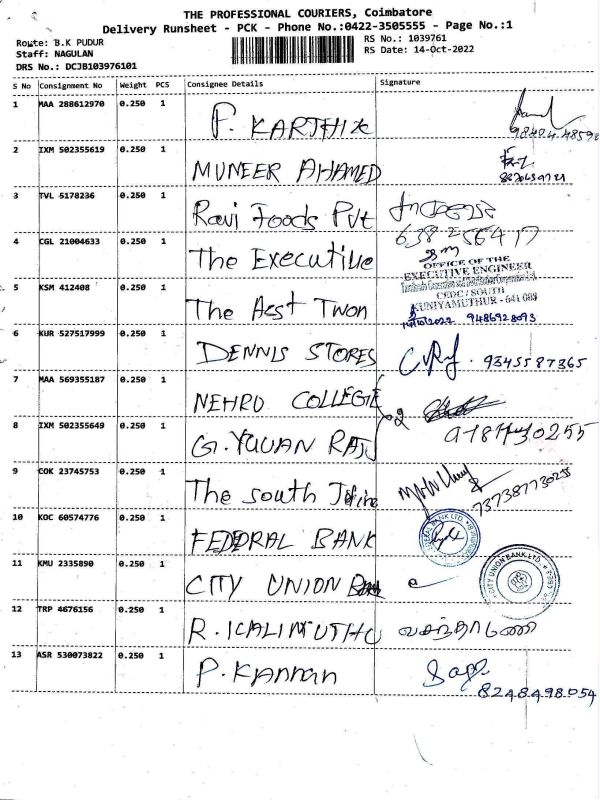 THE PROFESSIONAL COURIERS, Coimbatore
Delivery Runsheet - PCK - Phone No.:0422-3505555 - Page No.:1
Route: B.K PUDUR
Staff: NAGULAN
DRS No.: DCJB103976101
RS No.: 1039761
RS Date: 14-Oct-2022
S No Consignment No Weight PCS Consignee Details Signature
1 MAA 288612970 0.250 1 P. KARTHIK
2 IXM 502355619 0.250 1 MUNEER AHAMED
3 TVL 5178236 0.250 1 Ravi Foods Pvt
638 2564 17
4 CGL 21004633 0.250 1 The Executive
OFFICE OF THE
EXECUTIVE ENGINEER
CEDC / SOUTH
KUNIYAMUTHUR - 641 008
5 KSM 412408 0.250 1 The Asst
14/10/2022 9486928093
6 KUR 527517999 0.250 1 DENNIS STORES 9345587365
7 MAA 569355187 0.250 1 NEHRU COLLEGE
8 IXM 502355649 0.250 1 G. YUVAN RAJ
9 COK 23745753 0.250 1 The South
737387730255
10 KOC 60574776 0.250 1 FEDERAL BANK
11 KMU 2335890 0.250 1 CITY UNION Bank
CITY UNION BANK LTD.
12 TRP 4676156 0.250 1 R. KALIMUTHU வசந்தாமணி
13 ASR 530073822 0.250 1 P. Kannan
8248498054